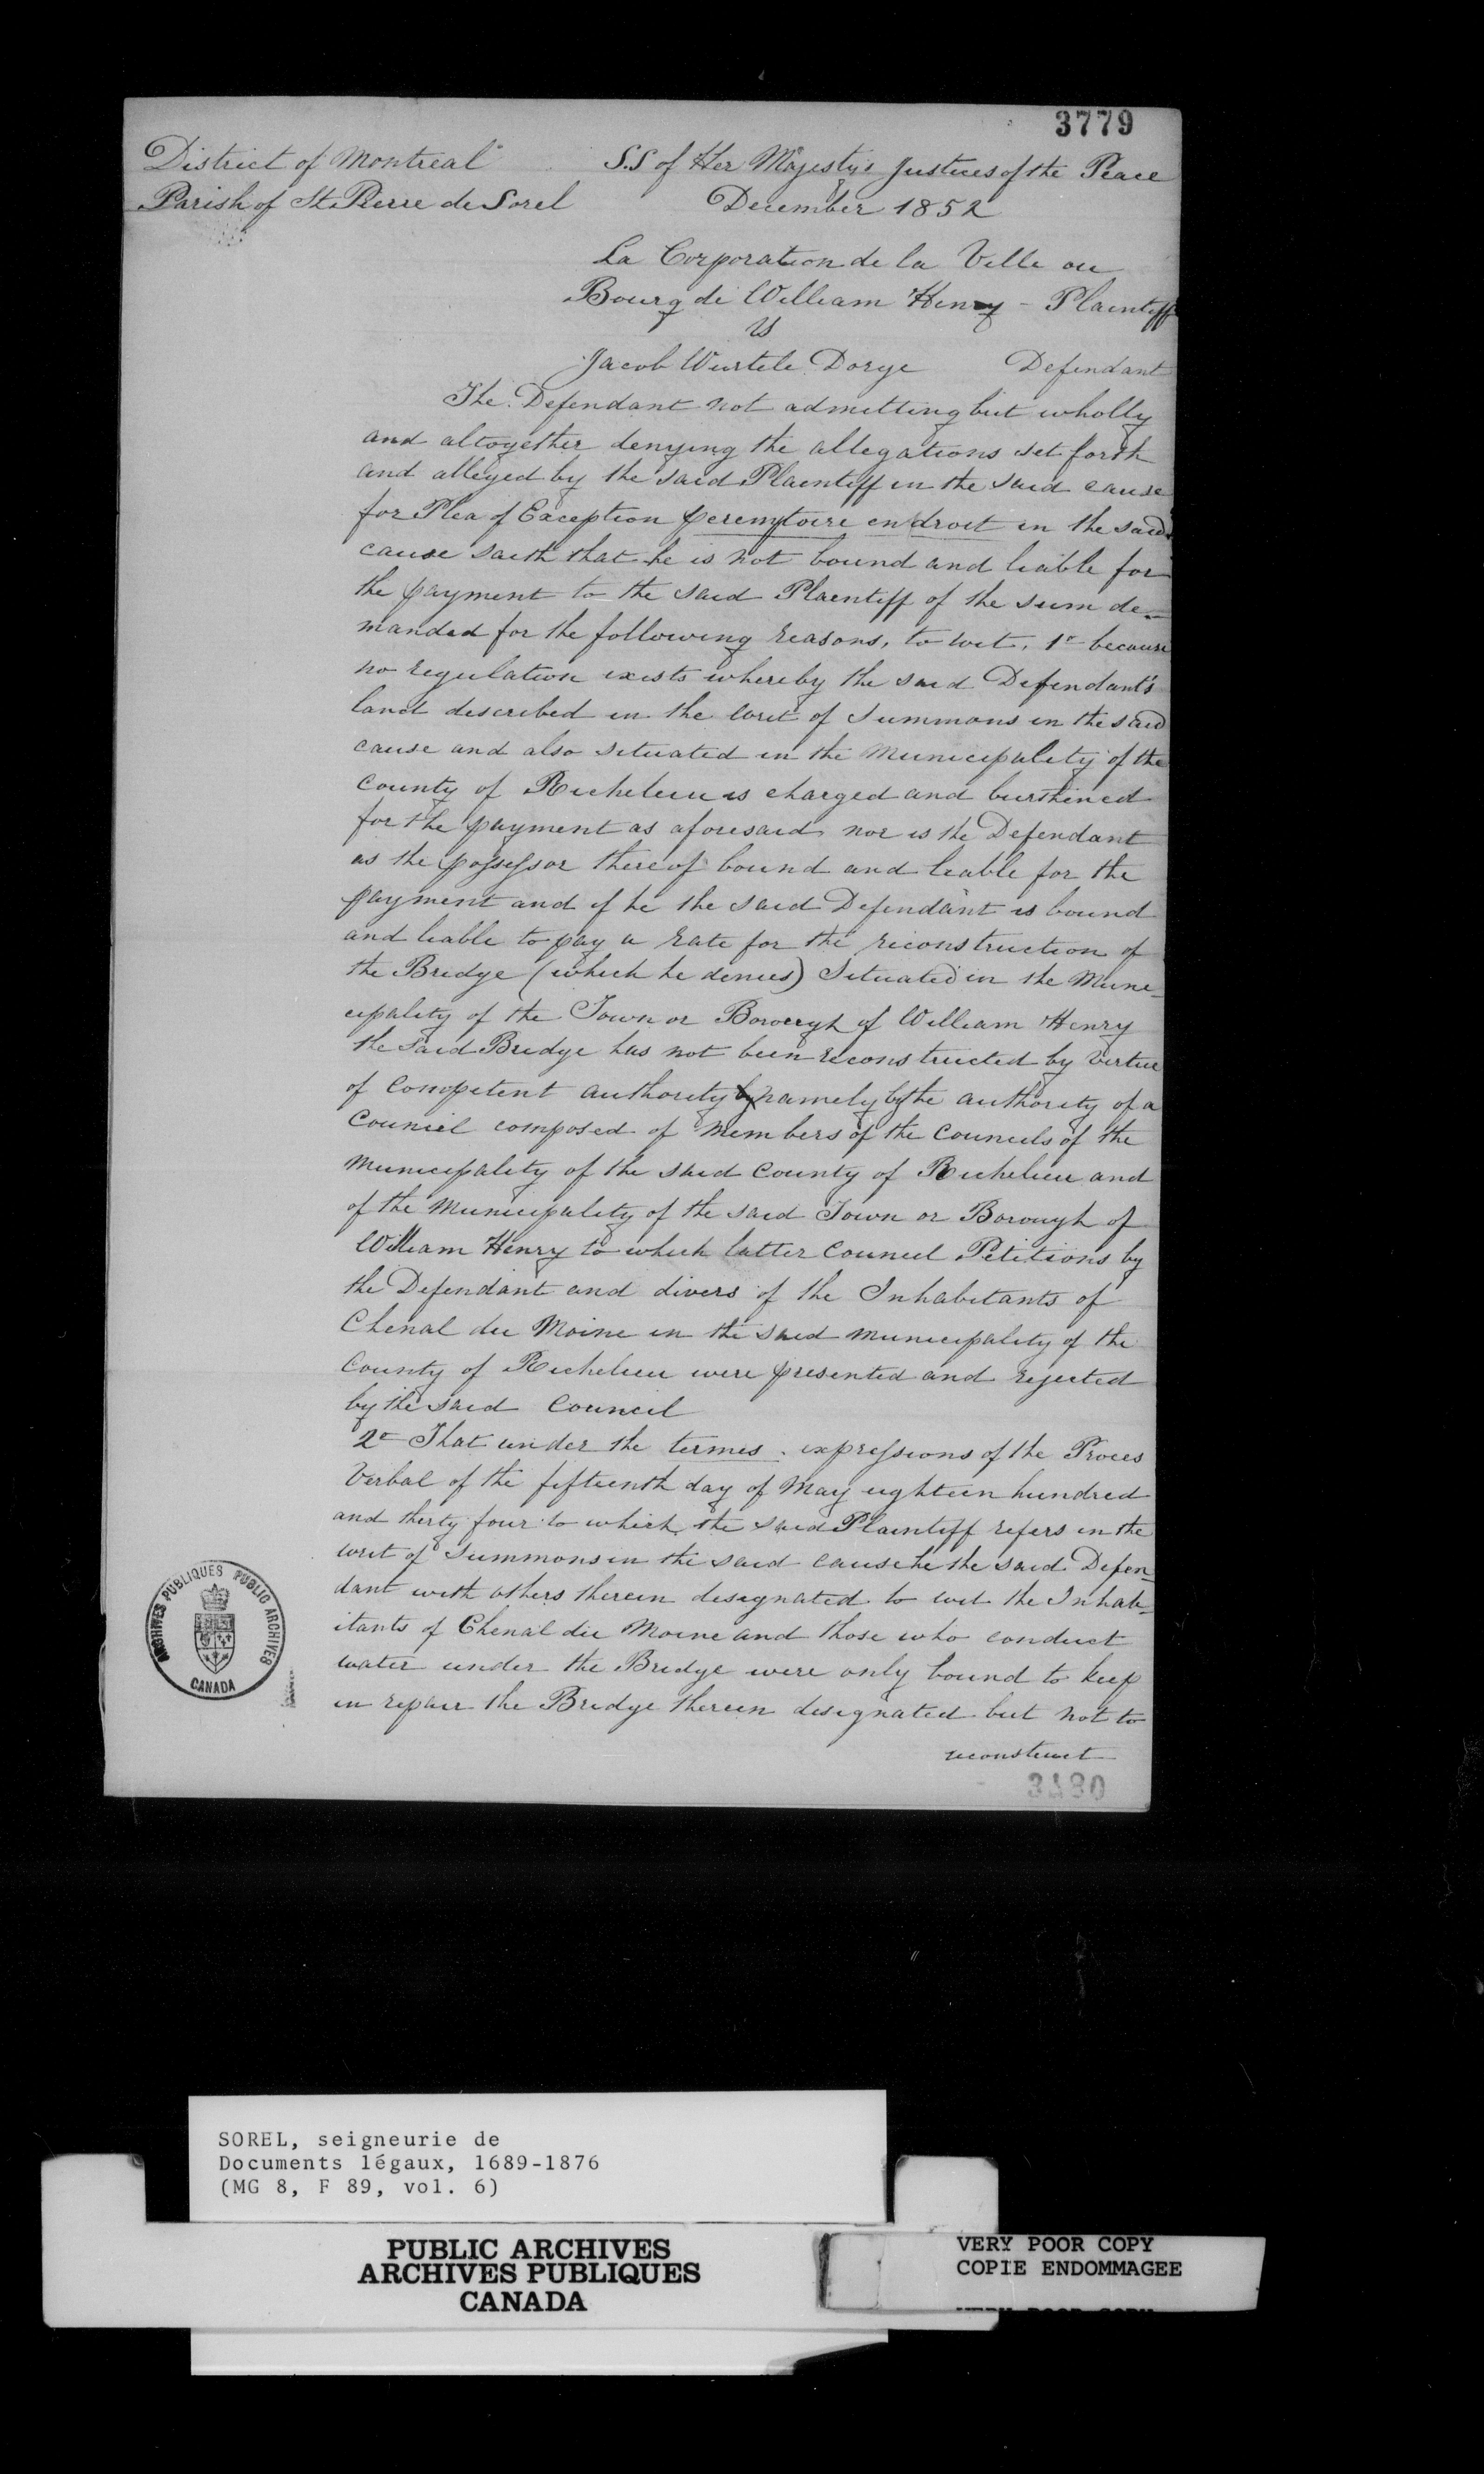 3779
District of Montreal
S.S of Her Majestys Justices of the Peace
Parish of St. Pierre de Sorel
December 1852
La Corporation de la Ville ou
Bourg de William Henry - Plaintiff
vs
Jacob Wurtele Dorge Defendant
The Defendant not admitting but wholly
and altogether denying the allegations set forth
and alleged by the said Plaintiff in the said cause
for Plea of Exception peremptoire en droit in the said
cause saith that he is not bound and liable for
the payment to the said Plaintiff of the sum de-
manded for the following reasons, to wit, 1o because
no regulation exists whereby the said Defendant's
land described in the writ of Summons in the said
cause and also situated in the Municipality of the
County of Richelieu is charged and burthened
for the payment as aforesaid nor is the Defendant
as the possessor thereof bound and liable for the
payment and if he the said Defendant is bound
and liable to pay a rate for the reconstruction of
the Bridge (which he denies) Situated in the Muni-
cipality of the Town or Borough of William Henry
the said Bridge has not been reconstructed by virtue
of competent authority namely by the authority of a
Council composed of Members of the Councils of the
Municipality of the said County of Richelieu and
of the Municipality of the said Town or Borough of
William Henry to which latter Council Petitions by
the Defendant and divers of the Inhabitants of
Chenal du Moine in the said Municipality of the
County of Richelieu were presented and rejected
by the said Council
2o That under the termes expressions of the Proces
Verbal of the fifteenth day of May eighteen hundred
and thirty four to which the said Plaintiff refers in the
writ of Summons in the said cause he the said Defen-
dant with others therein designated to wit the Inhab-
itants of Chenal du Moine and those who conduct
water under the Bridge were only bound to keep
in repair the Bridge therein designated but not to
reconstruct
ARCHIVES PUBLIQUES PUBLIC ARCHIVES
CANADA
SOREL, seigneurie de
Documents légaux, 1689-1876
(MG 8, F 89, vol. 6)
PUBLIC ARCHIVES
ARCHIVES PUBLIQUES
CANADA
VERY POOR COPY
COPIE ENDOMMAGEE